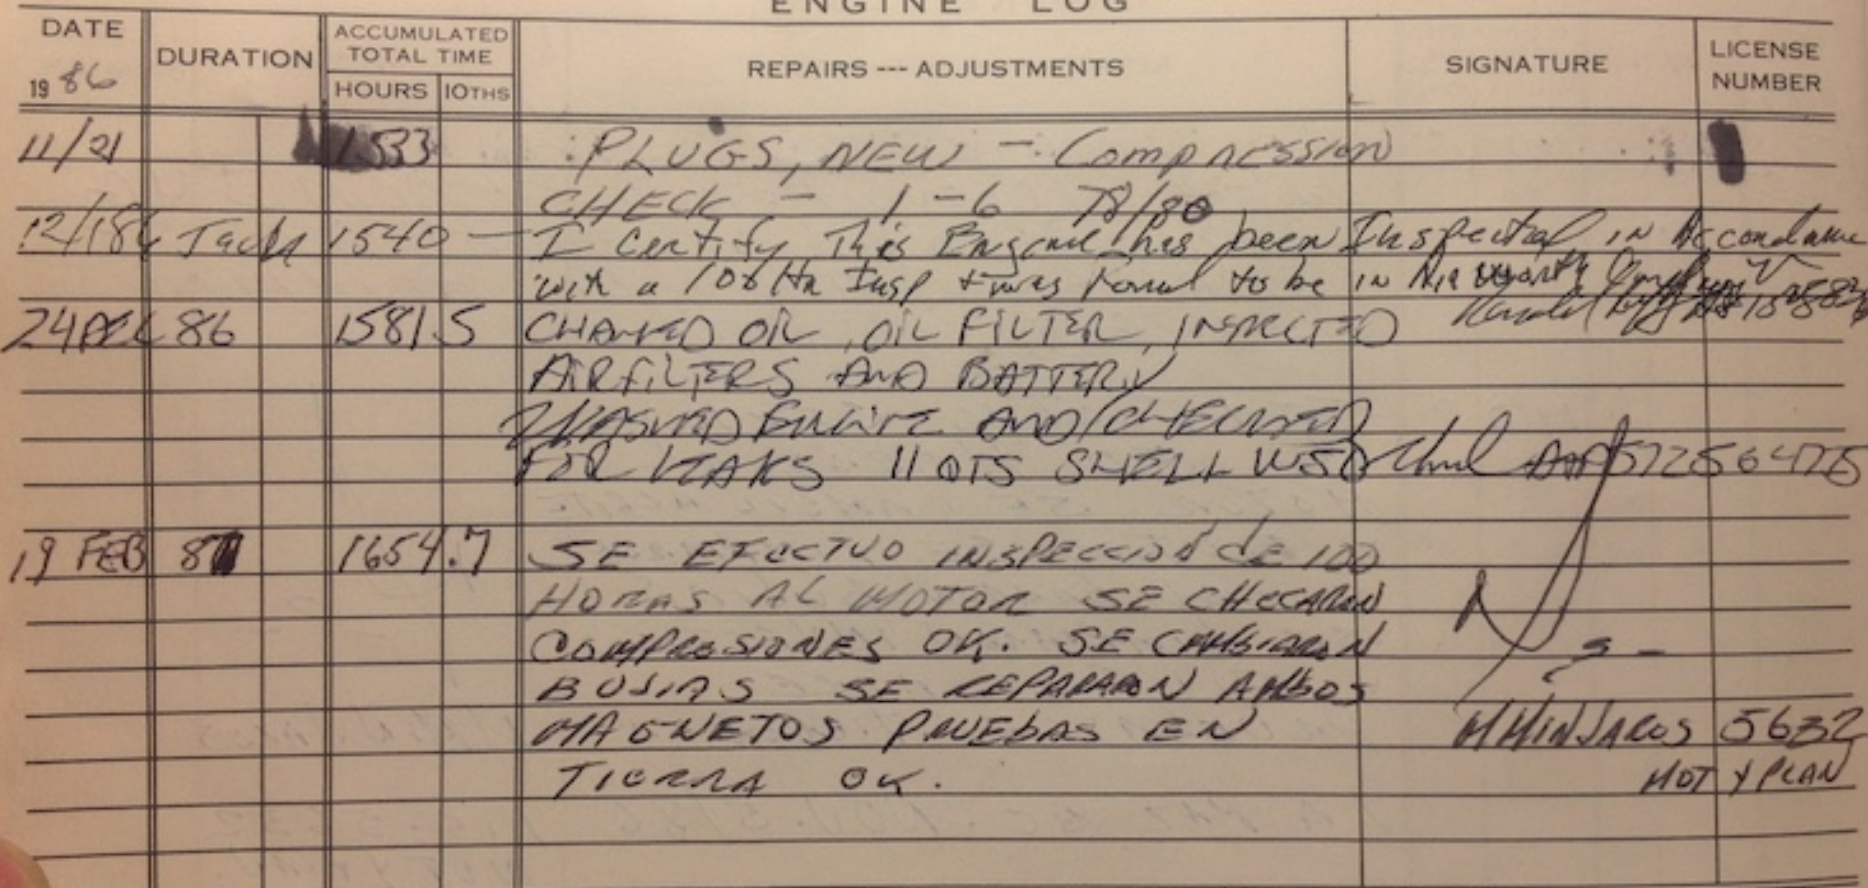 ENGINE LOG
DATE
1986
DURATION
ACCUMULATED TOTAL TIME
HOURS 10THS
REPAIRS --- ADJUSTMENTS
SIGNATURE
LICENSE NUMBER
11/21 1533 PLUGS, NEW - COMPRESSION
CHECK - 1-6 78/80
12/1/86 Tach 1540 — I Certify This Engine has been Inspected in Accordance
with a 100 Hr Insp & was found to be in Airworthy
24 DEC 86 1581.5 CHANGED OIL, OIL FILTER, INSPECTED
AIR FILTERS AND BATTERY
WASHED ENGINE AND CHECKED
FOR LEAKS 11 QTS SHELL W50
19 FEB 87 1654.7 SE EFECTUO INSPECCION de 100
HORAS AL MOTOR SE CHECARON
COMPRESIONES OK. SE CAMBIARON
BUJIAS SE REPARARON AMBOS
MAGNETOS PRUEBAS EN M MINJARES 5632
TIERRA OK. MOT Y PLAN